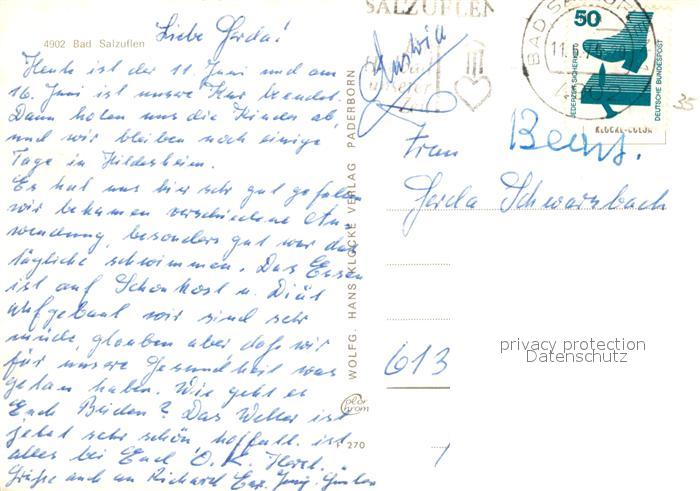 4902 Bad Salzuflen
Liebe Gerda!
Heute ist der 11. Juni und am
16. Juni ist unsere Kur beendet.
Dann holen uns die Kinder ab,
und wir bleiben noch einige
Tage in Hildesheim.
Es hat uns hier sehr gut gefallen
wir bekamen verschiedene An-
wendung, besonders gut war das
tägliche schwimmen. Das Essen
ist auf Schonkost u. Diät
aufgebaut wir sind sehr
müde, glauben aber daß wir
für unsere Gesundheit was
getan haben. Wie geht es
Euch Beiden? Das Wetter ist
jetzt sehr schön hoffentl. ist
alles bei Euch O.K. Herzl.
Grüße auch an Richard
WOLFG. HANS KLOCKE VERLAG PADERBORN
color chrom
270
SALZUFLEN
unserer
BAD SALZUFLEN
11.6.
50
JEDERZEIT SICHERHEIT
DEUTSCHE BUNDESPOST
KLOCKE-COLOR
35
Austria
Frau
Gerda Schwarzbach
613
privacy protection
Datenschutz